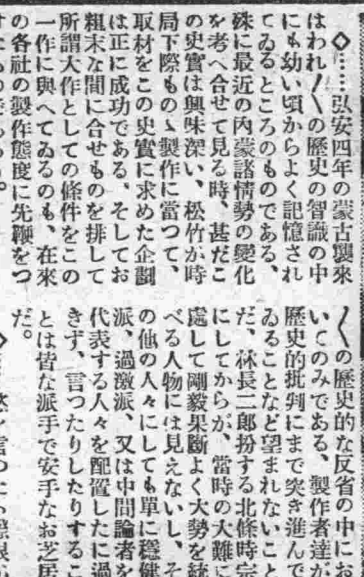 ◇……弘安四年の蒙古襲來
はわれ〳〵の歷史の智識の中
にも幼い頃からよく記憶され
てゐるところのものである、
殊に最近の內蒙諸情勢の變化
を考へ合せて見る時、甚だこ
の史實は興味深い、松竹が時
局下際ものゝ製作に當つて、
取材をこの史實に求めた企劃
は正に成功である、そしてお
粗末な間に合せものを排して
所謂大作としての條件をこの
一作に與へてゐるのも、在來
の各社の製作態度に先鞭をつ
〳〵の歷史的な反省の中にお
いてのみである、製作者達が
歷史的批判にまで突き進んで
ゐることなど望まれないこと
だ、林長二郞扮する北條時宗
にしてからが、當時の大難に
處して剛毅果斷よく大勢を統
べる人物には見えないし、そ
の他の人々にしても單に穩健
派、過激派、又は中間論者を
代表する人々を配置したに過
きず、言つたりしたりするこ
とは皆な派手で安手なお芝居
だ。